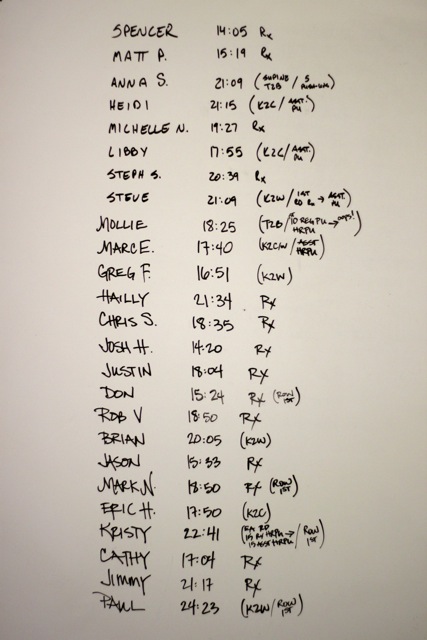 SPENCER 14:05 Rx
MATT P. 15:19 Rx
ANNA S. 21:09 (SUPINE T2B / 5 PUSH-UPS)
HEIDI 21:15 (K2C / ASST. PU)
MICHELLE N. 19:27 Rx
LIBBY 17:55 (K2C / ASST. PU)
STEPH S. 20:39 Rx
STEVE 21:09 (K2W / 1ST RD Rx → ASST. PU)
MOLLIE 18:25 (T2B / 10 REG PU → OOPS! HRPU)
MARC E. 17:40 (K2C/W / ASST HRPU)
GREG F. 16:51 (K2W)
HAILLY 21:34 Rx
CHRIS S. 18:35 Rx
JOSH H. 14:20 Rx
JUSTIN 18:04 Rx
DON 15:24 Rx (ROW 1ST)
ROB V 18:50 Rx
BRIAN 20:05 (K2W)
JASON 15:33 Rx
MARK N. 18:50 Rx (ROW 1ST)
ERIC H. 17:50 (K2C)
KRISTY 22:41 (EA RD 15 Rx HRPU → 15 ASST HRPU / ROW 1ST)
CATHY 17:04 Rx
JIMMY 21:17 Rx
PAUL 24:23 (K2W / ROW 1ST)